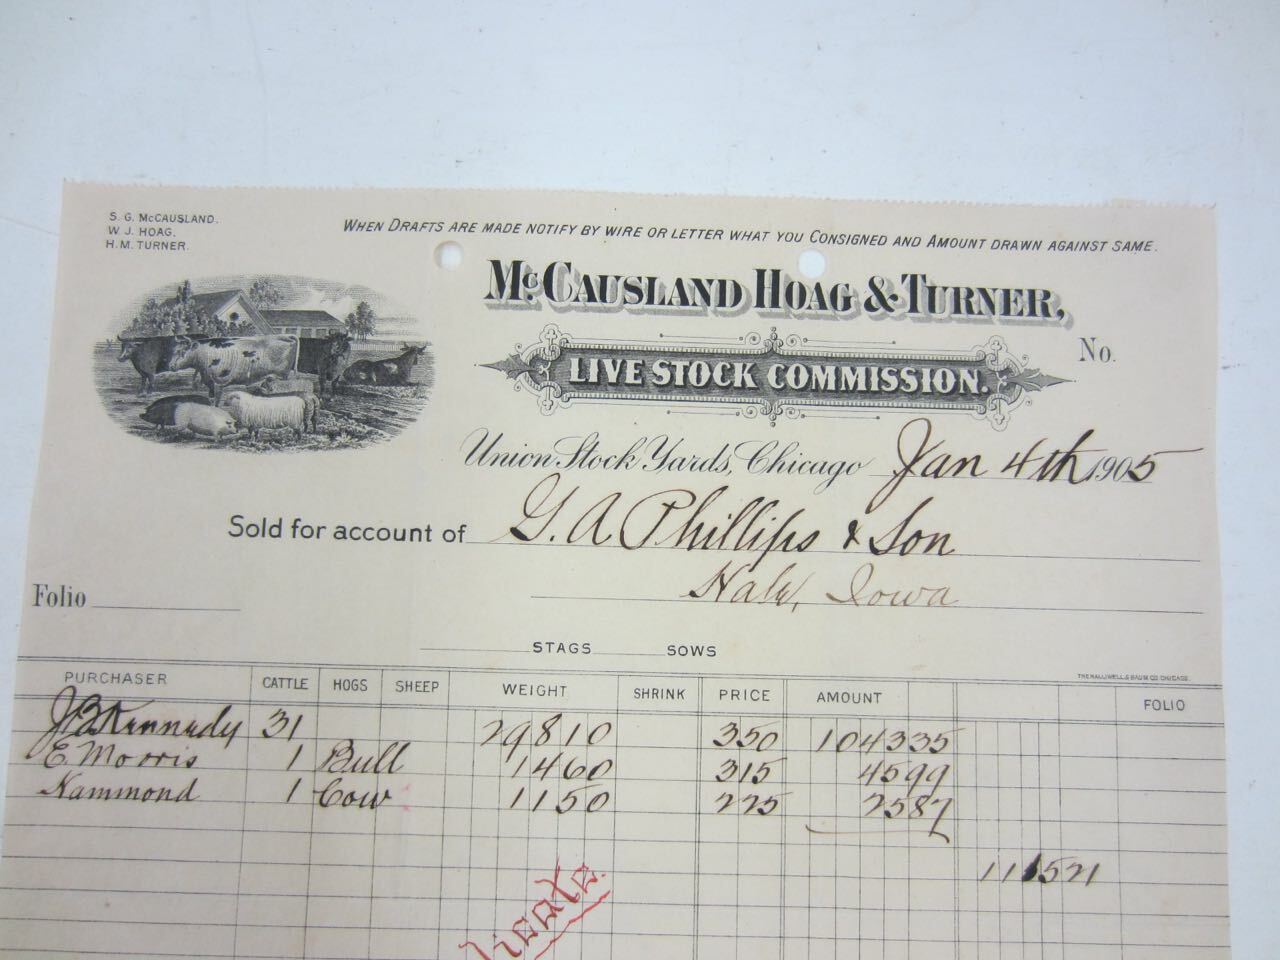 S. G. McCAUSLAND.
W. J. HOAG.
H. M. TURNER.
WHEN DRAFTS ARE MADE NOTIFY BY WIRE OR LETTER WHAT YOU CONSIGNED AND AMOUNT DRAWN AGAINST SAME.
McCAUSLAND HOAG & TURNER,
LIVE STOCK COMMISSION.
No.
Union Stock Yards, Chicago Jan 4th 1905
Sold for account of G. A Phillips & Son
Iowa
Folio
STAGS SOWS
THE HALLIWELL & BAUM CO. CHICAGO.
PURCHASER CATTLE HOGS SHEEP WEIGHT SHRINK PRICE AMOUNT FOLIO
J B Kennedy 31 29810 350 104335
E. Morris 1 Bull 1460 315 4599
Hammond 1 Cow 1150 225 2587
111521
licate.